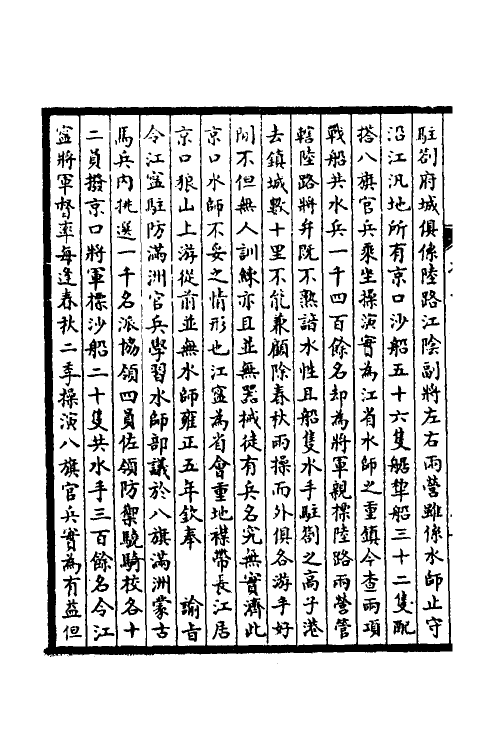 駐劄府城俱係陸路江陰副將左右兩營雖係水師止守
沿江汛地所有京口沙船五十六隻艍犂船三十二隻配
搭八旗官兵乘坐操演實為江省水師之重鎮今查兩項
戰船共水兵一千四百餘名却為將軍親標陸路兩營管
轄陸路將弁既不熟諳水性且船隻水手駐劄之高子港
去鎮城數十里不能兼顧除春秋兩操而外俱各游手好
閒不但無人訓練亦且並無器械徒有兵名究無實濟此
京口水師不妥之情形也江寍為省會重地襟帶長江居
京口狼山上游從前並無水師雍正五年欽奉　諭旨
令江寍駐防滿洲官兵學習水師部議於八旗滿洲蒙古
馬兵內挑選一千名派協領四員佐領防禦驍騎校各十
二員撥京口將軍標沙船二十隻共水手三百餘名令江
寍將軍督率每逢春秋二季操演八旗官兵實為有益但